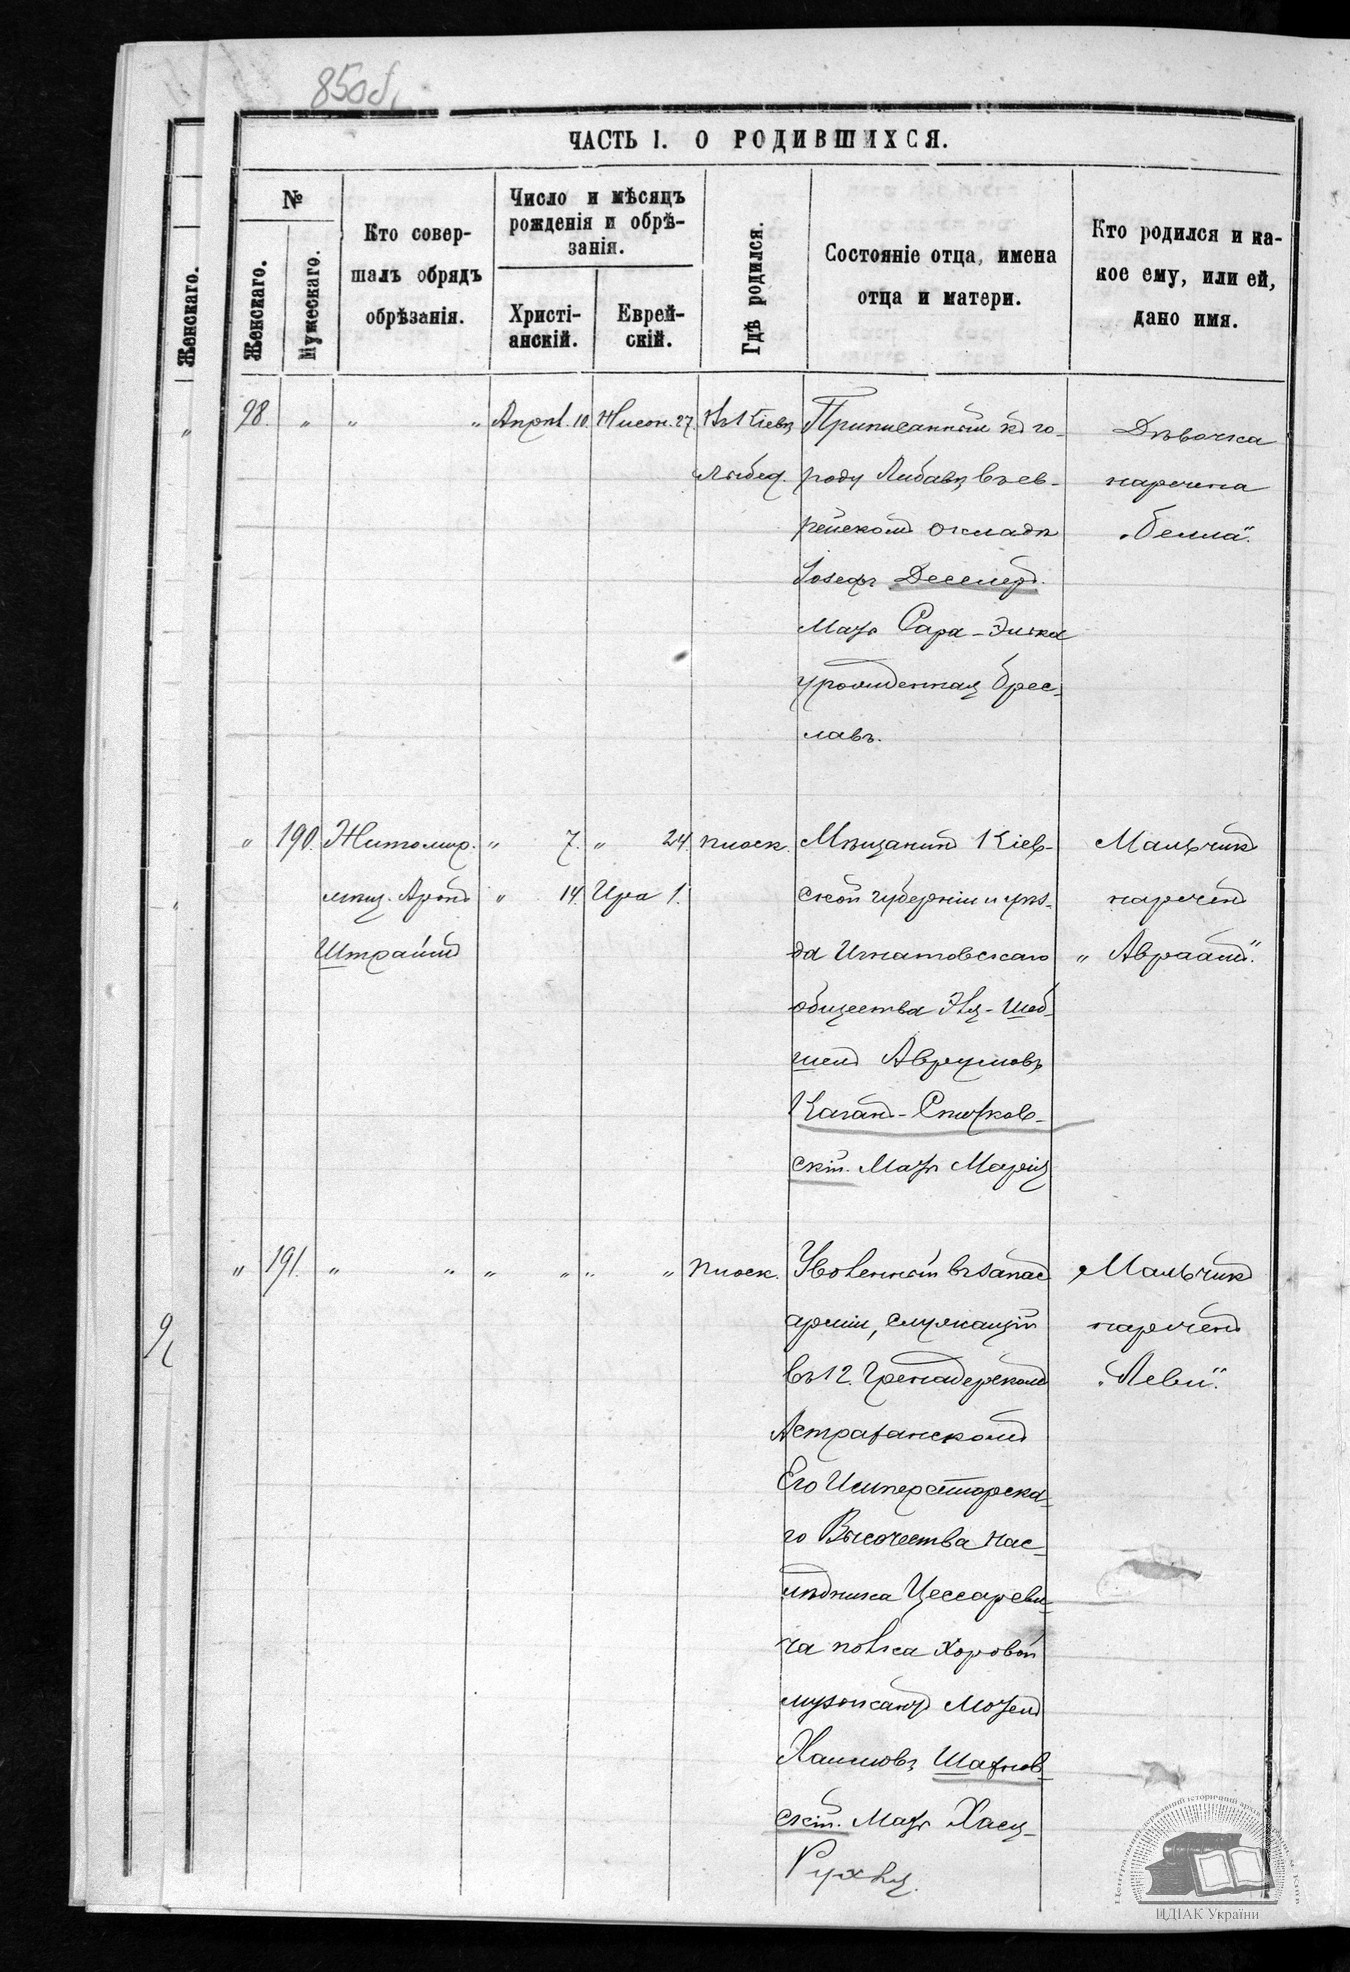 850б.
ЧАСТЬ I. О РОДИВШИХСЯ.
№
Женскаго.
Женскаго.
Мужескаго.
Кто совер-
шалъ обрядъ
обрѣзанія.
Число и мѣсяцъ
рожденія и обрѣ-
занія.
Христі-
анскій.
Еврей-
скій.
Гдѣ родился.
Состояніе отца, имена
отца и матери.
Кто родился и ка-
кое ему, или ей,
дано имя.
98. " " " Апрѣл. 10. Нисон. 27. Въ Кіевѣ
Лыбед.
Приписанный къ го-
роду Либавѣ въ ев-
рейскомъ окладѣ
Іосифъ Деслеръ.
Мать Сара-Элька
урожденная Брес-
лавъ.
Дѣвочка
наречена
"Белла".
" 190. Житомир. " 7. " 24. плоск.
мѣщ. Аронъ " 14. Ияра 1.
Штрайтъ
Мѣщанинъ Кіев-
ской губерніи и уѣз-
да Игнатовскаго
общества Эля-Шеб-
шелъ Аврумовъ
Каганъ-Спичков-
скій. Мать Марія
Мальчикъ
нареченъ
"Авраамъ".
" 191. " " " " " " плоск.
Уволенный въ запас
арміи, служащій
въ 12. Гренадерскомъ
Астраханскомъ
Его Императорска-
го Высочества Нас-
лѣдника Цессареви-
ча полка хоровой
музыкантъ Мотель
Хаимовъ Шахнов-
скій. Мать Хася-
Рухля.
Мальчикъ
нареченъ
"Леви".
ЦДІАК України